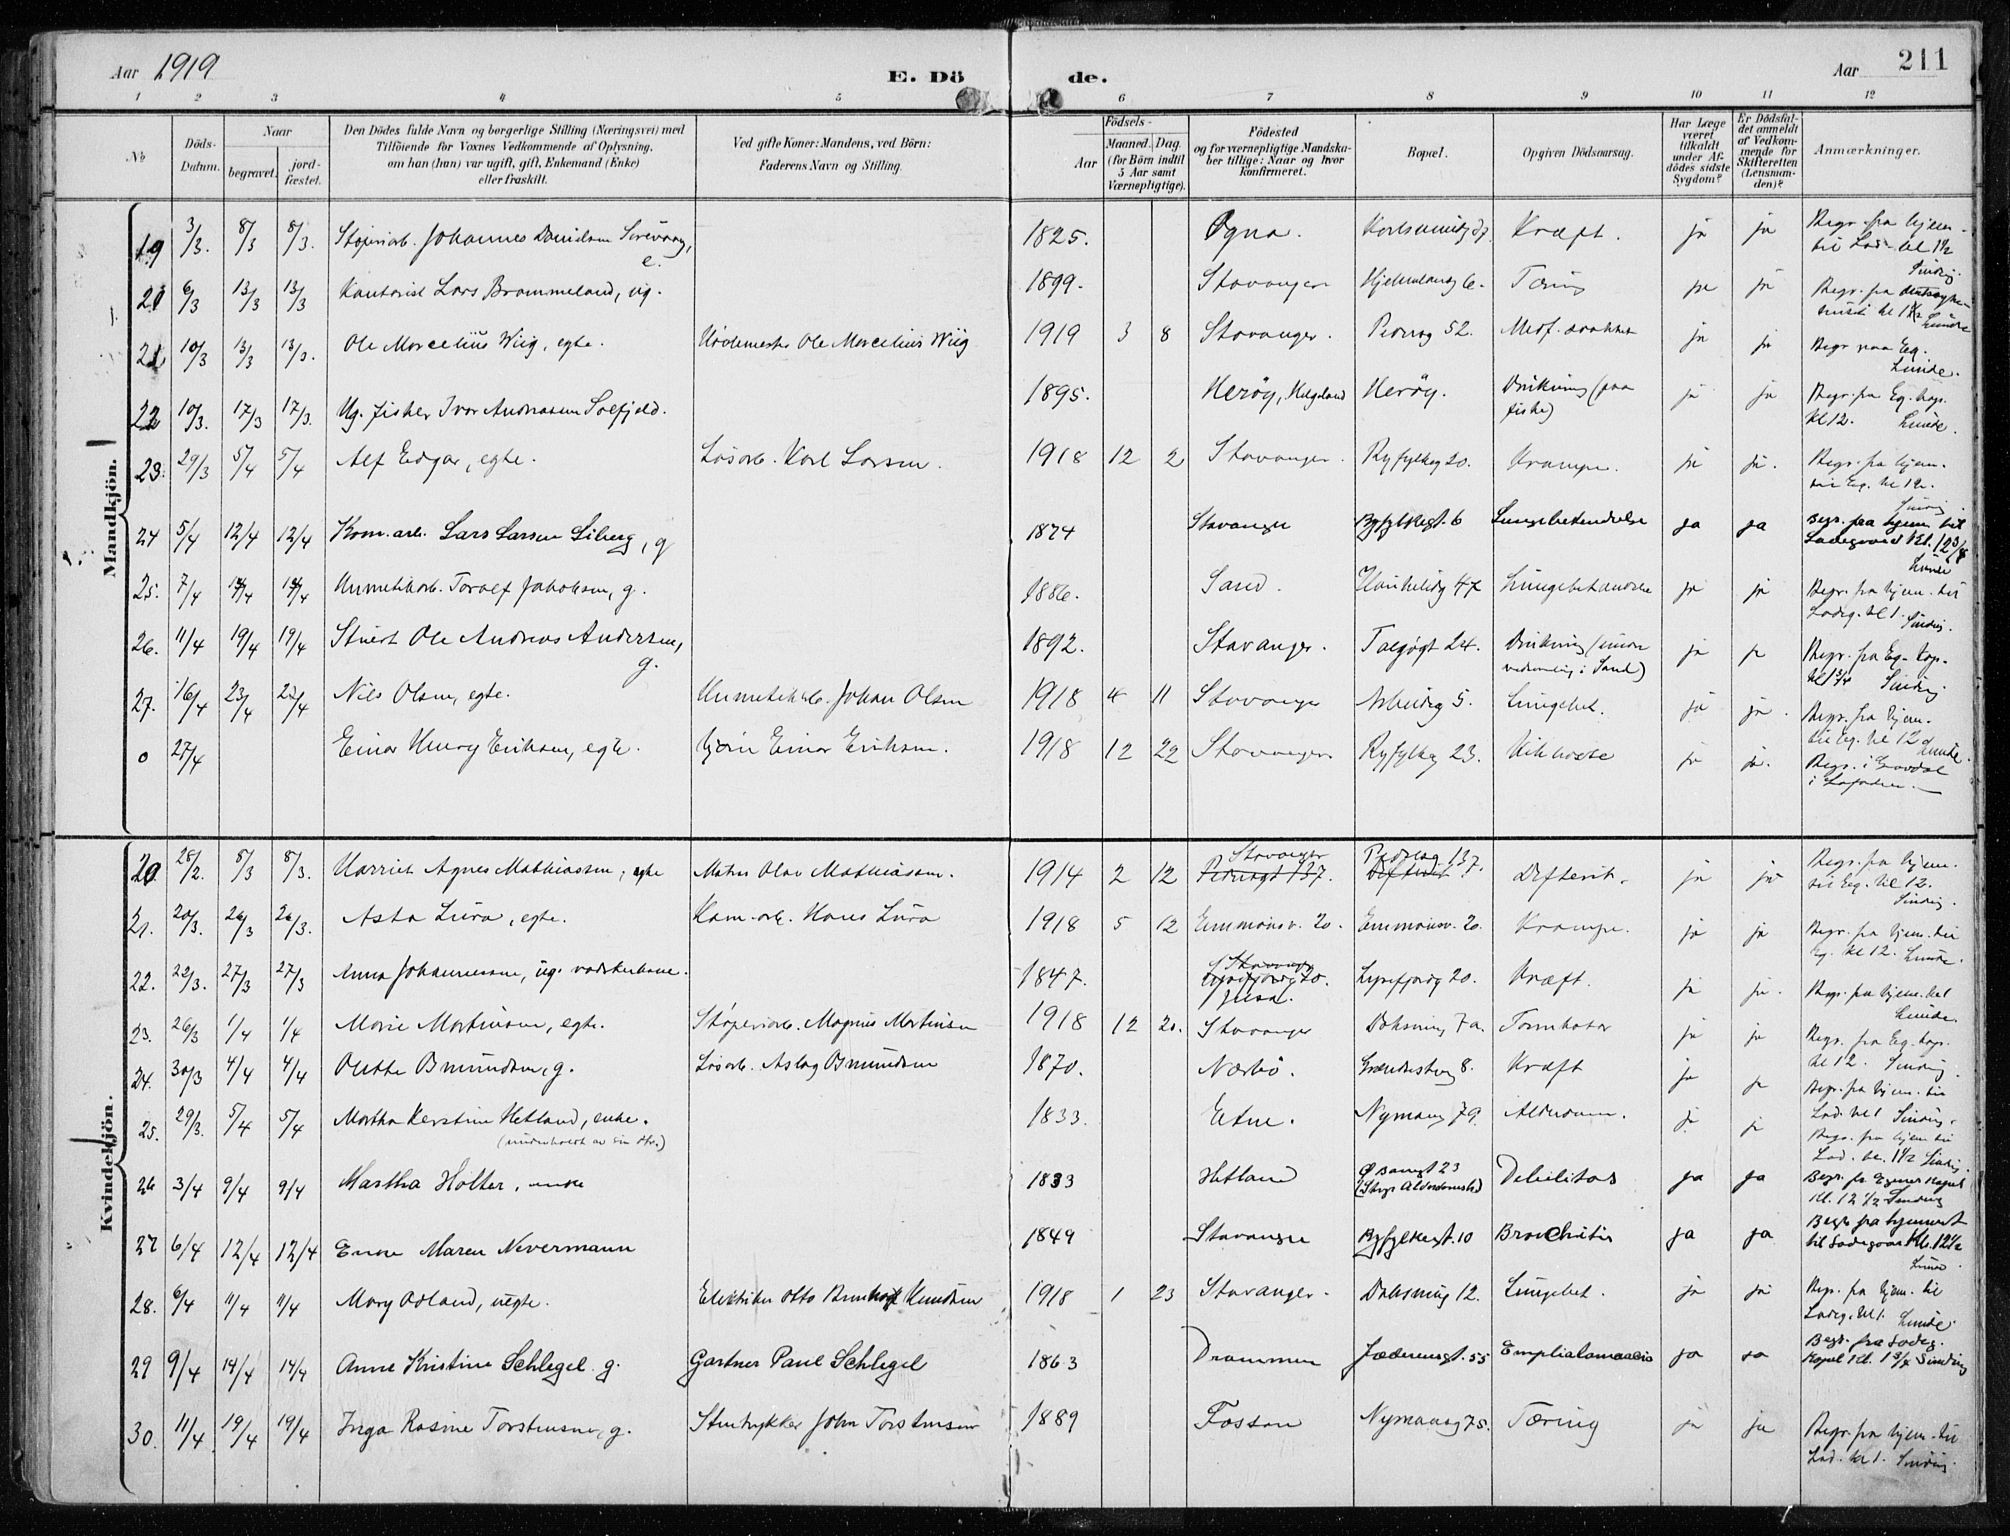 Aar 1919
E. Dö de.
Aar 211
1 2 3 4 5 6 7 8 9 10 11 12
№
Döds-Datum.
Naar
begravet.
jord-fæstet.
Den Dödes fulde Navn og borgerlige Stilling (Næringsvei) med
Tilföiende for Voxnes Vedkommende af Oplysning,
om han (hun) var ugift, gift, Enkemand (Enke)
eller fraskilt.
Ved gifte Koner: Mandens, ved Börn:
Faderens Navn og Stilling.
Födsels-
Aar
Maaned. Dag.
(for Börn indtil
5 Aar samt
Værnepligtige).
Födested
og for værnepligtige Mandska-
ber tillige: Naar og hvor
konfirmeret.
Bopæl.
Opgiven Dödsaarsag.
Har Læge
været
tilkaldt
under Af-
dödes sidste
Sygdom?
Er Dödsfal-
det anmeldt
af Vedkom-
mende for
Skifteretten
(Lensman-
den)?
Anmærkninger.
Mandkjön.
19 3/3. 8/3 8/3. Støperiarb. Johannes Danielsen Sirevaag, e. 1825. Ogna. Kræft. ja ja Begr. fra hjem. til Lad. kl 1½ Sinding.
20 6/3 13/3 13/3 Kontorist Lars Brommeland, ug. 1899. Stavanger Hjelmelandg 6. Tæring ja ja Begr. fra Lunde
21 10/3 13/3 13/3. Ole Marcelius Wiig, egte. Ole Marcelius Wiig 1919 3 8 Stavanger. Pedersg 52. Medf. svakhet ja ja Begr. paa Eg. Lunde.
22 10/3. 17/3 17/3. Ug. fisker Ivar Andreassen Solfjeld. 1895. Herøy, Helgeland Herøy. Drukning (paa fiske) ja ja Begr. fra Eg. kap. kl 12. Lunde.
23. 29/3 5/4 5/4 Alf Edgar, egte. Løsarb. Karl Larsen. 1918 12 2 Stavanger. Ryfylkeg 20. Krampe. ja ja. Begr. fra hjem. til Eg. kl 12. Sinding.
24 5/4 12/4 12/4 Kom. arb. Lars Larsen Liberg, g 1874 Stavanger Ryfylkegt. 6 Lungebetendelse ja ja Begr. fra hjem til Ladegaard Kl. 12 Lunde
25. 7/4 14/4 14/4 Hermetikarb. Toralf Jakobsen, g. 1886. Sand. Haukelidg 47 Lungebetændelse ja ja Begr. fra hjem. til Ladeg. kl 1. Sinding.
26. 11/4 19/4 19/4 Stuert Ole Andreas Andersen, g. 1892. Stavanger. Talgøgt 24. Drukning ja ja Begr. fra Eg. Kap. kl 1¾ Sinding
27. 16/4 23/4 23/4 Nils Olsen, egte. Hermetikarb. Johan Olsen 1918 4 11 Stavanger Arbeiderg 5. Lungebet. ja ja. Begr. fra hjem. til Eg. kl 12 Lunde.
0 27/4 Einar Henry Eriksen, egte. Einar Eriksen. 1918 12 22 Stavanger Ryfylkeg 23. Kikhoste ja ja. Begr. i
Kvindekjön.
20 28/2. 8/3 8/3. Harriet Agnes Mathiassen, egte Olav Mathiassen. 1914 2 12 Stavanger Pedersgt 137. Pedersg 137. Difterit. Difterit. ja ja Begr. fra hjem. til Eg. kl 12. Sinding.
21. 20/3. 26/3 26/3. Asta Lura, egte. Kom. arb. Hans Lura 1918 5 12 Emmausv. 20. Emmausv. 20. Krampe. ja ja Begr. fra hjem. til Eg. kl 12. Lunde.
22. 22/3. 27/3 27/3 Anna Johannessen, ug. vaskekone. 1847. Lysefjordg 20. Kræft. ja ja. Begr. fra hjem. Lunde.
23. 26/3 1/4 1/4 Marie Martinsen, egte. Støperiarb. Magnus Martinsen 1918 12 20. Stavanger Dokneveg 7a. ja ja Begr. fra Eg. kap. kl 12. Sinding.
24. 30/3 4/4 4/4 Olette Osmundsen, g. Løsarb. Aslag Osmundsen 1870. Nærbø. 8. Kræft ja ja Begr. fra hjem. til Lad. kl 1 Sinding.
25. 29/3. 5/4 5/4 Martha Kerstine Hetland, enke. 1833. Etne. Nymansg 79. Alderdom. ja ja Begr. fra hjem til Lad. kl. 1½ Sinding.
26 3/4 9/4 9/4 Martha Holter, enke 1833 Hetland Debilitas ja ja Kl. 12 1/2 Sinding
27 6/4 12/4 12/4 Enke Maren Nevermann 1849 Stavanger Ryfylkegt. 10 Bronchitis ja ja Begr. fra hjemmet til Ladegaard Kl. 12½ Lunde.
28. 6/4 11/4 11/4 Mary Adland, uegte. Elektriker Otto Knudsen 1918 1 23 Stavanger. 12. Lungebet. ja ja Begr. fra hjem. til Ladeg. kl 1. Lunde.
29 9/4 14/4 14/4 Anne Kristine Schlegel g. Gartner Paul Schlegel 1863 Drammen Jæderensgt. 55 ja ja Begr. fra Ladeg. Kapel Kl. 1 Sinding
30. 11/4 19/4 19/4 Inga Rasine Torstensen, g. Stentrykker John Torstensen 1889 Fossan Nymansg 75. Tæring ja ja Begr. fra hjem. til Lad. kl 1. Sinding.